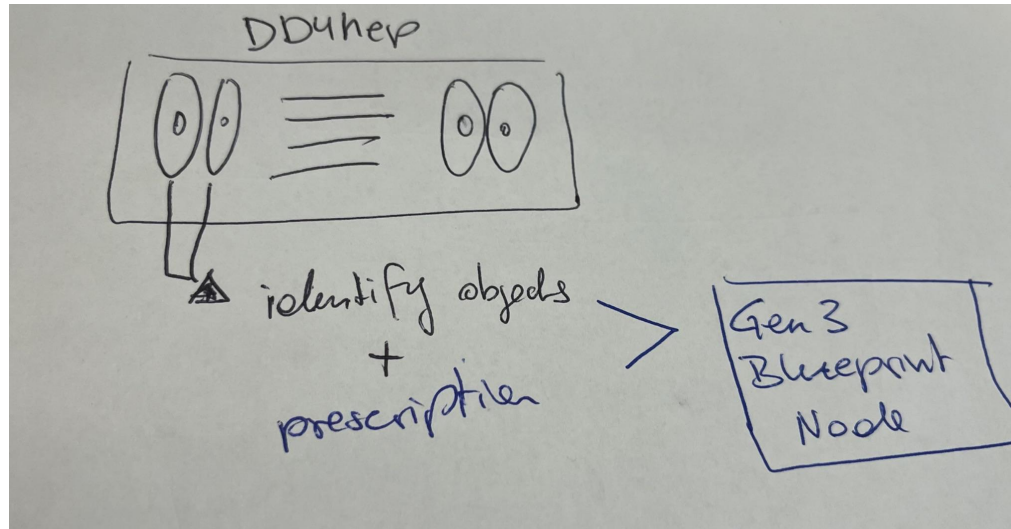 DD4hep
identify objects
+
prescription
Gen 3
Blueprint
Node